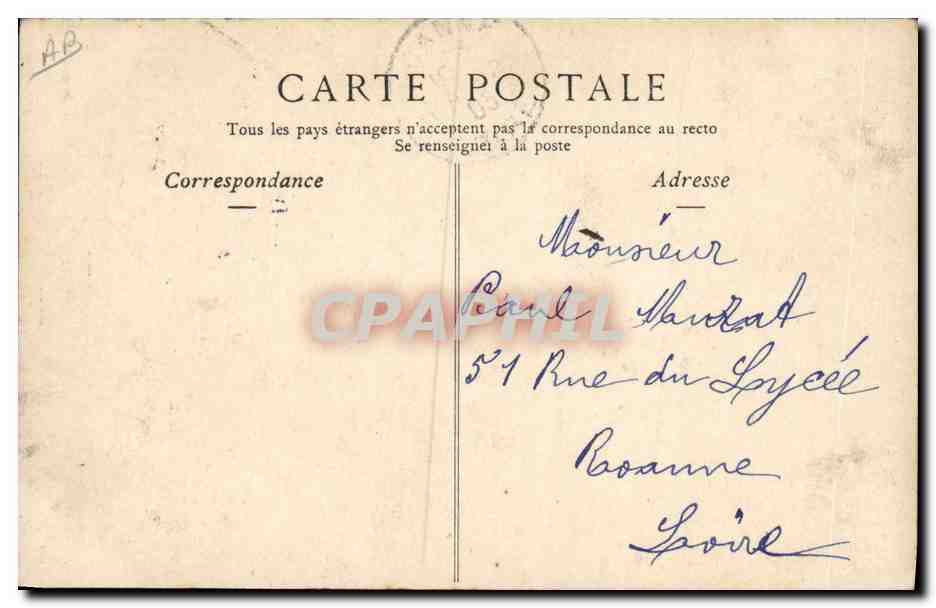 AB
CARTE POSTALE
Tous les pays étrangers n'acceptent pas la correspondance au recto
Se renseigner à la poste
Correspondance
Adresse
Monsieur
Paul Murzat
51 Rue du Lycée
Roanne
Loire
CPAPHIL